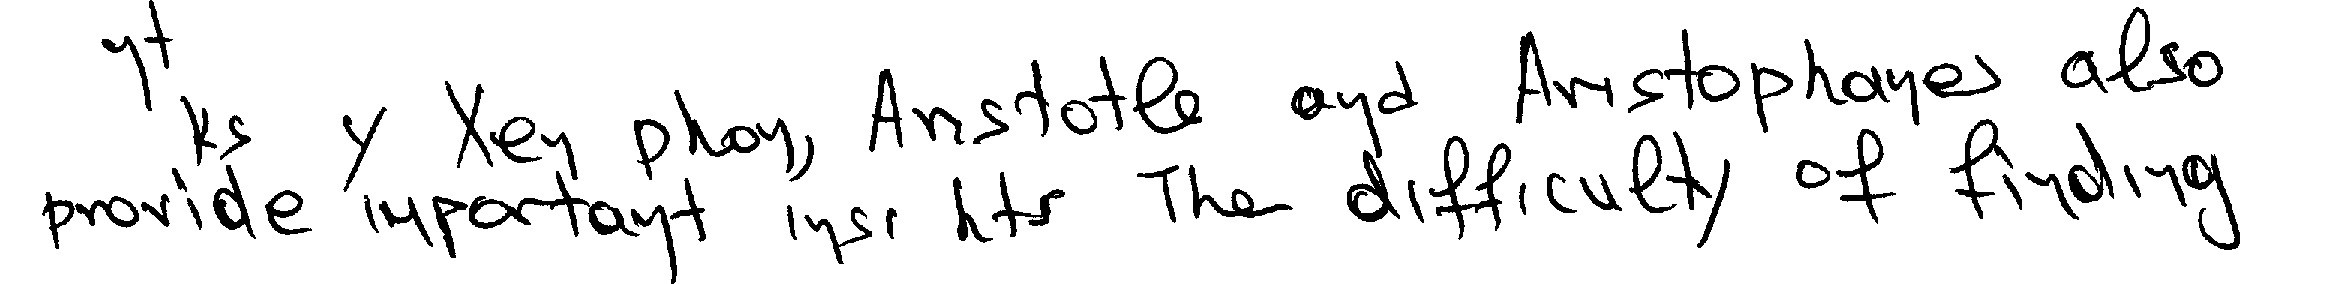 ks y Xenphon, Aristotle and Aristophanes also
provide important insi hts The difficulty of finding